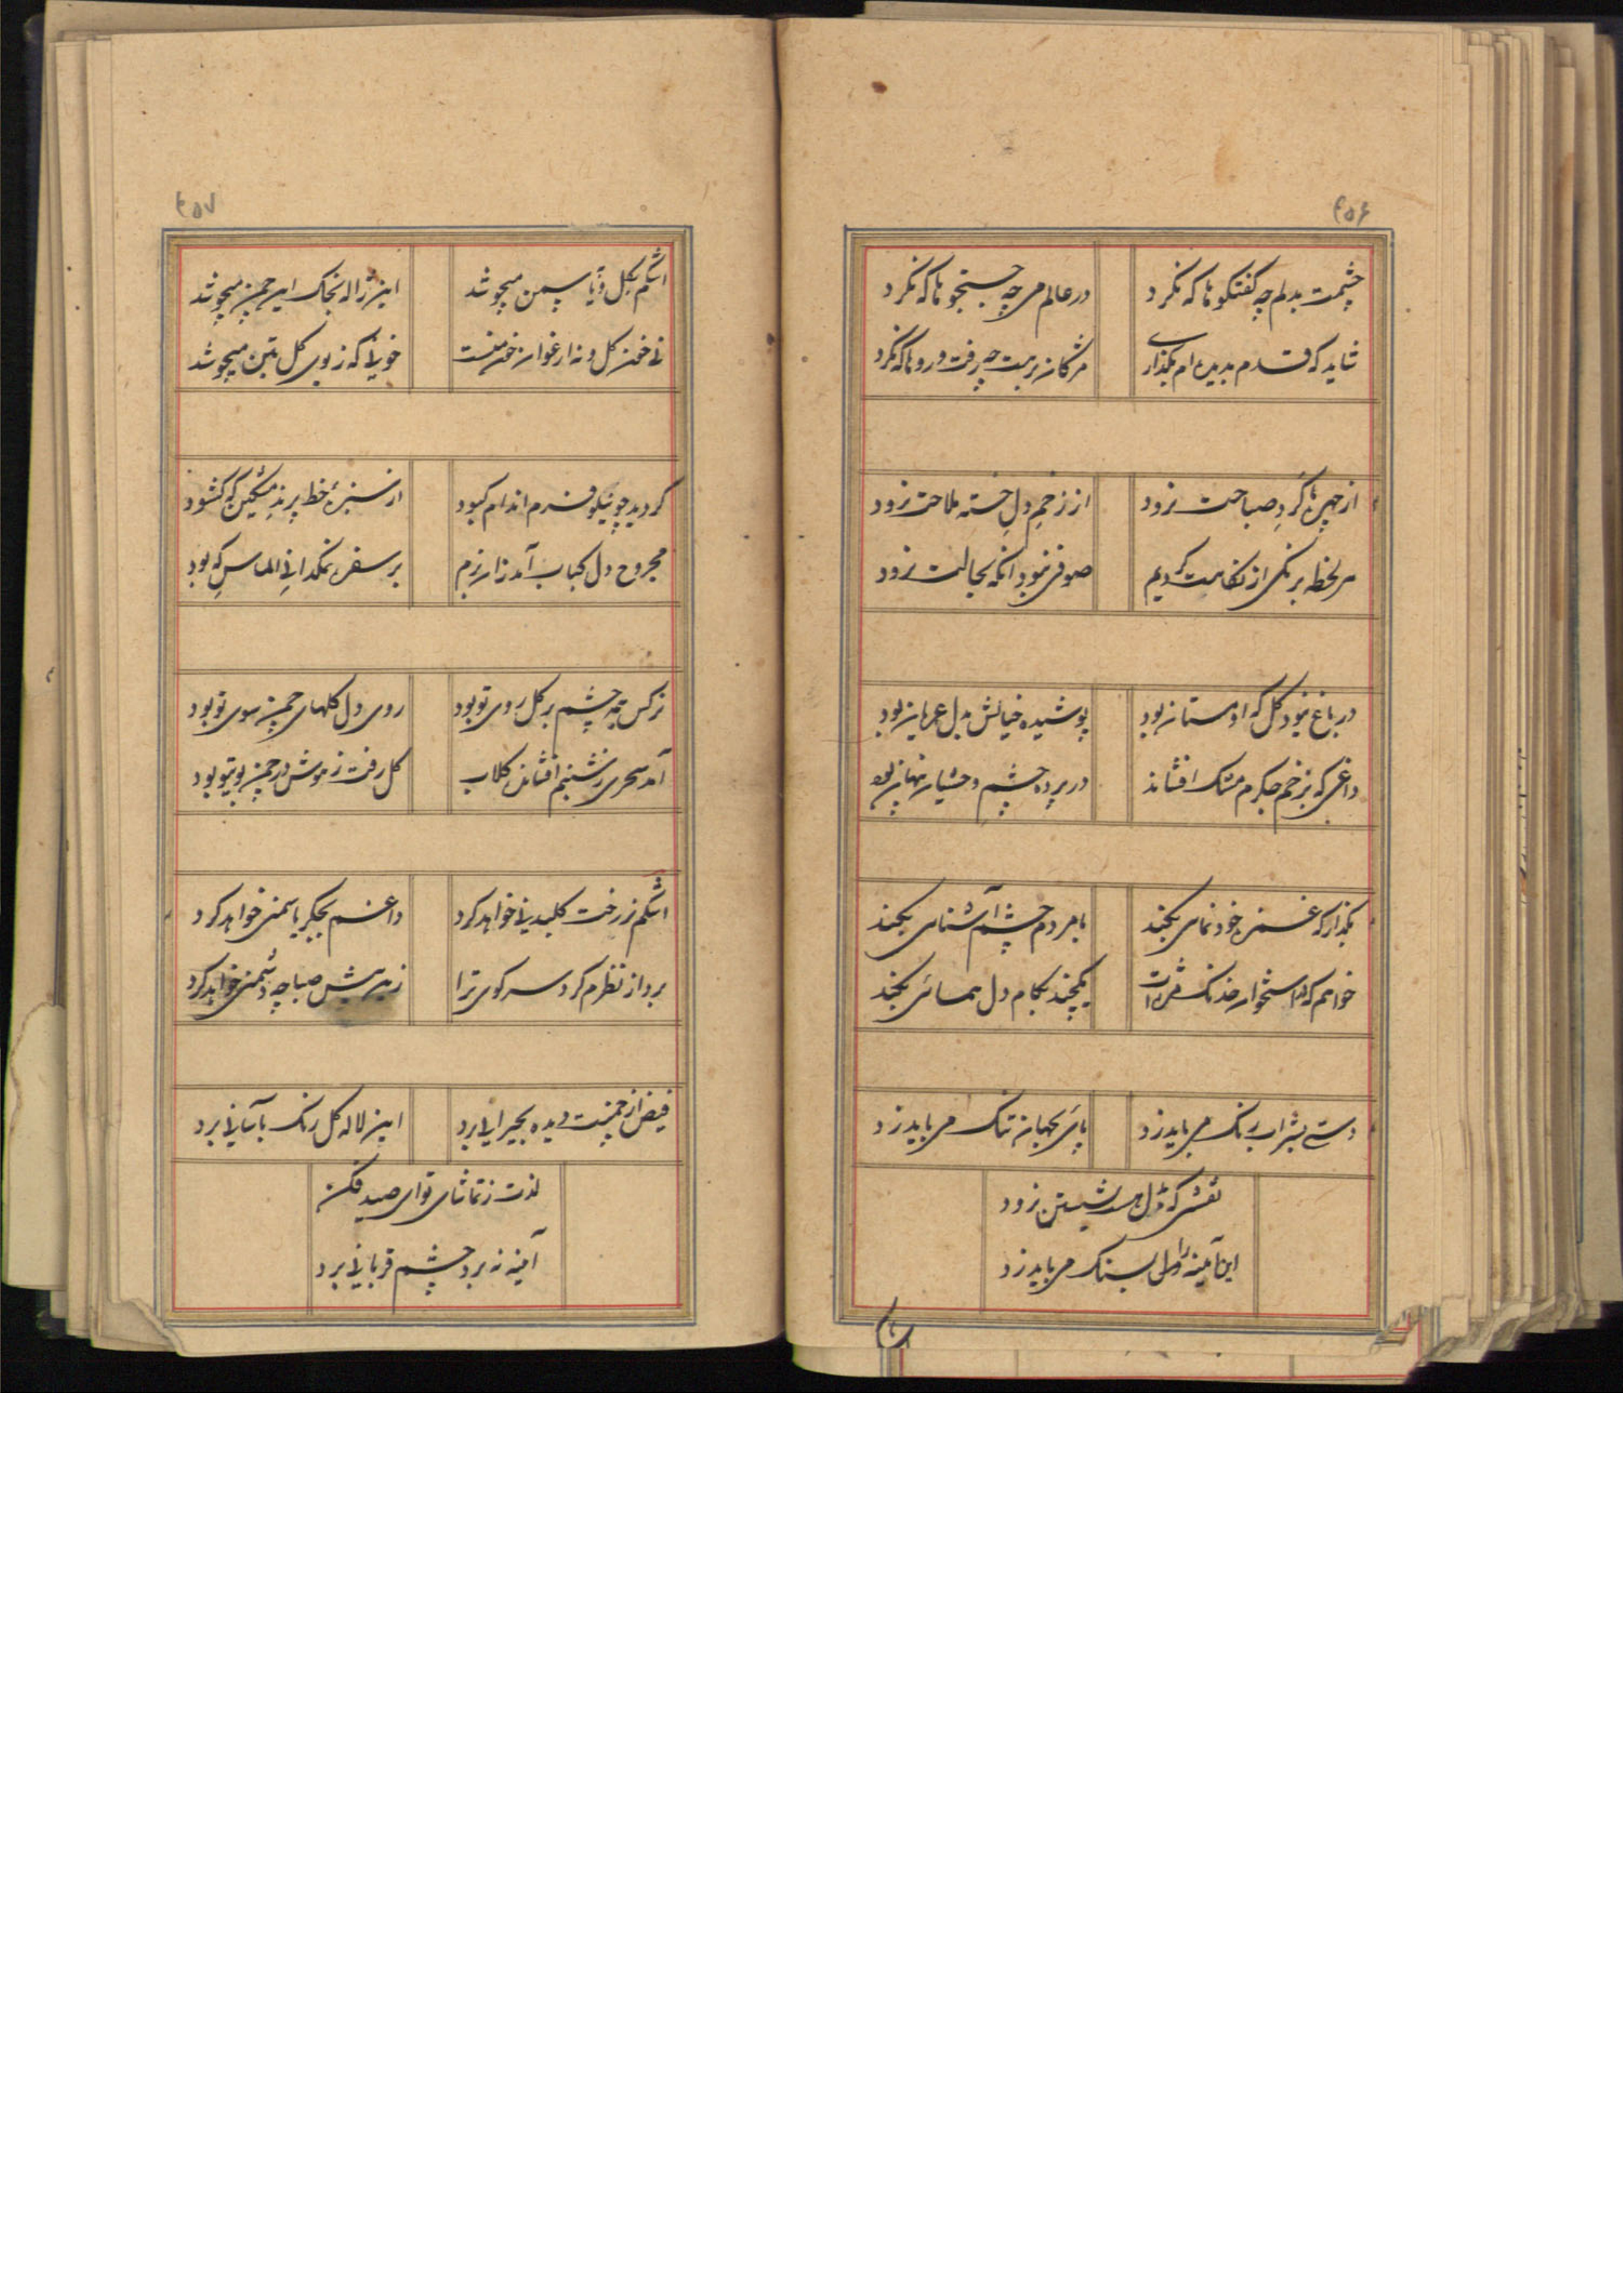 ۴۵۶
چشمت بدلم چه گفتگوها که نکرد
در عالم می چه جستجوها که نکرد
شاید که قدم بدیده ام بگذاری
مژگان بربت چه رفت و روها که نکرد
از چهره ها گردِ صباحت نرود
از زخمِ دلِ خسته ملاحت نرود
هر لحظه برنگی از نگاهت گردیم
صوفی نبود آنکه بحالت نرود
در باغ نبود گل که او مستان بود
پوشیده خیالش بدل عریان بود
داغی که بزخم جگرم مشک افشاند
در پرده چشم وحشیان پنهان بود
بگذار که غمزه خود نمائی بکند
با مردم چشم آشنائی بکند
خواهم که در استخوان خدنگ مژه ات
یکچند بکام دل همائی بکند
دستی بشراب رنگ می باید زد
پائی بجهان تنگ می باید زد
نقشی که ز دل بسر شستن نرود
این آئینه را بسنگ می باید زد
۴۵۷
اشکم بگل و یاسمن میجوشد
این ژاله بخاک این چمن میجوشد
نی خون گل و نه ارغوان خون منست
خونی که ز بوی گل بتن میجوشد
گردید چو نیلوفرم اندام کبود
از سبزه خط پرند مشکین که گشود
مجروح دل کباب آمد زان بزم
بر سفره نمکدانیِ الماسِ که بود
نرگس همه چشم بر گل روی تو بود
روی دل گلهای چمن سوی تو بود
آمد سحری ز شبنم افشاند گلاب
گل رفت ز هوش در چمن بوی تو بود
اشکم ز رخت گلبدنی خواهد کرد
داغم بجگر یاسمنی خواهد کرد
برد از نظرم گرد سر کوی ترا
زین بیش صبا چه دشمنی خواهد کرد
فیض از چمنت دیده بحیرانی برد
این لاله گل رنگ بآسانی برد
لذت ز تماشای تو ای صید فکن
آئینه نه برد چشم قربانی برد